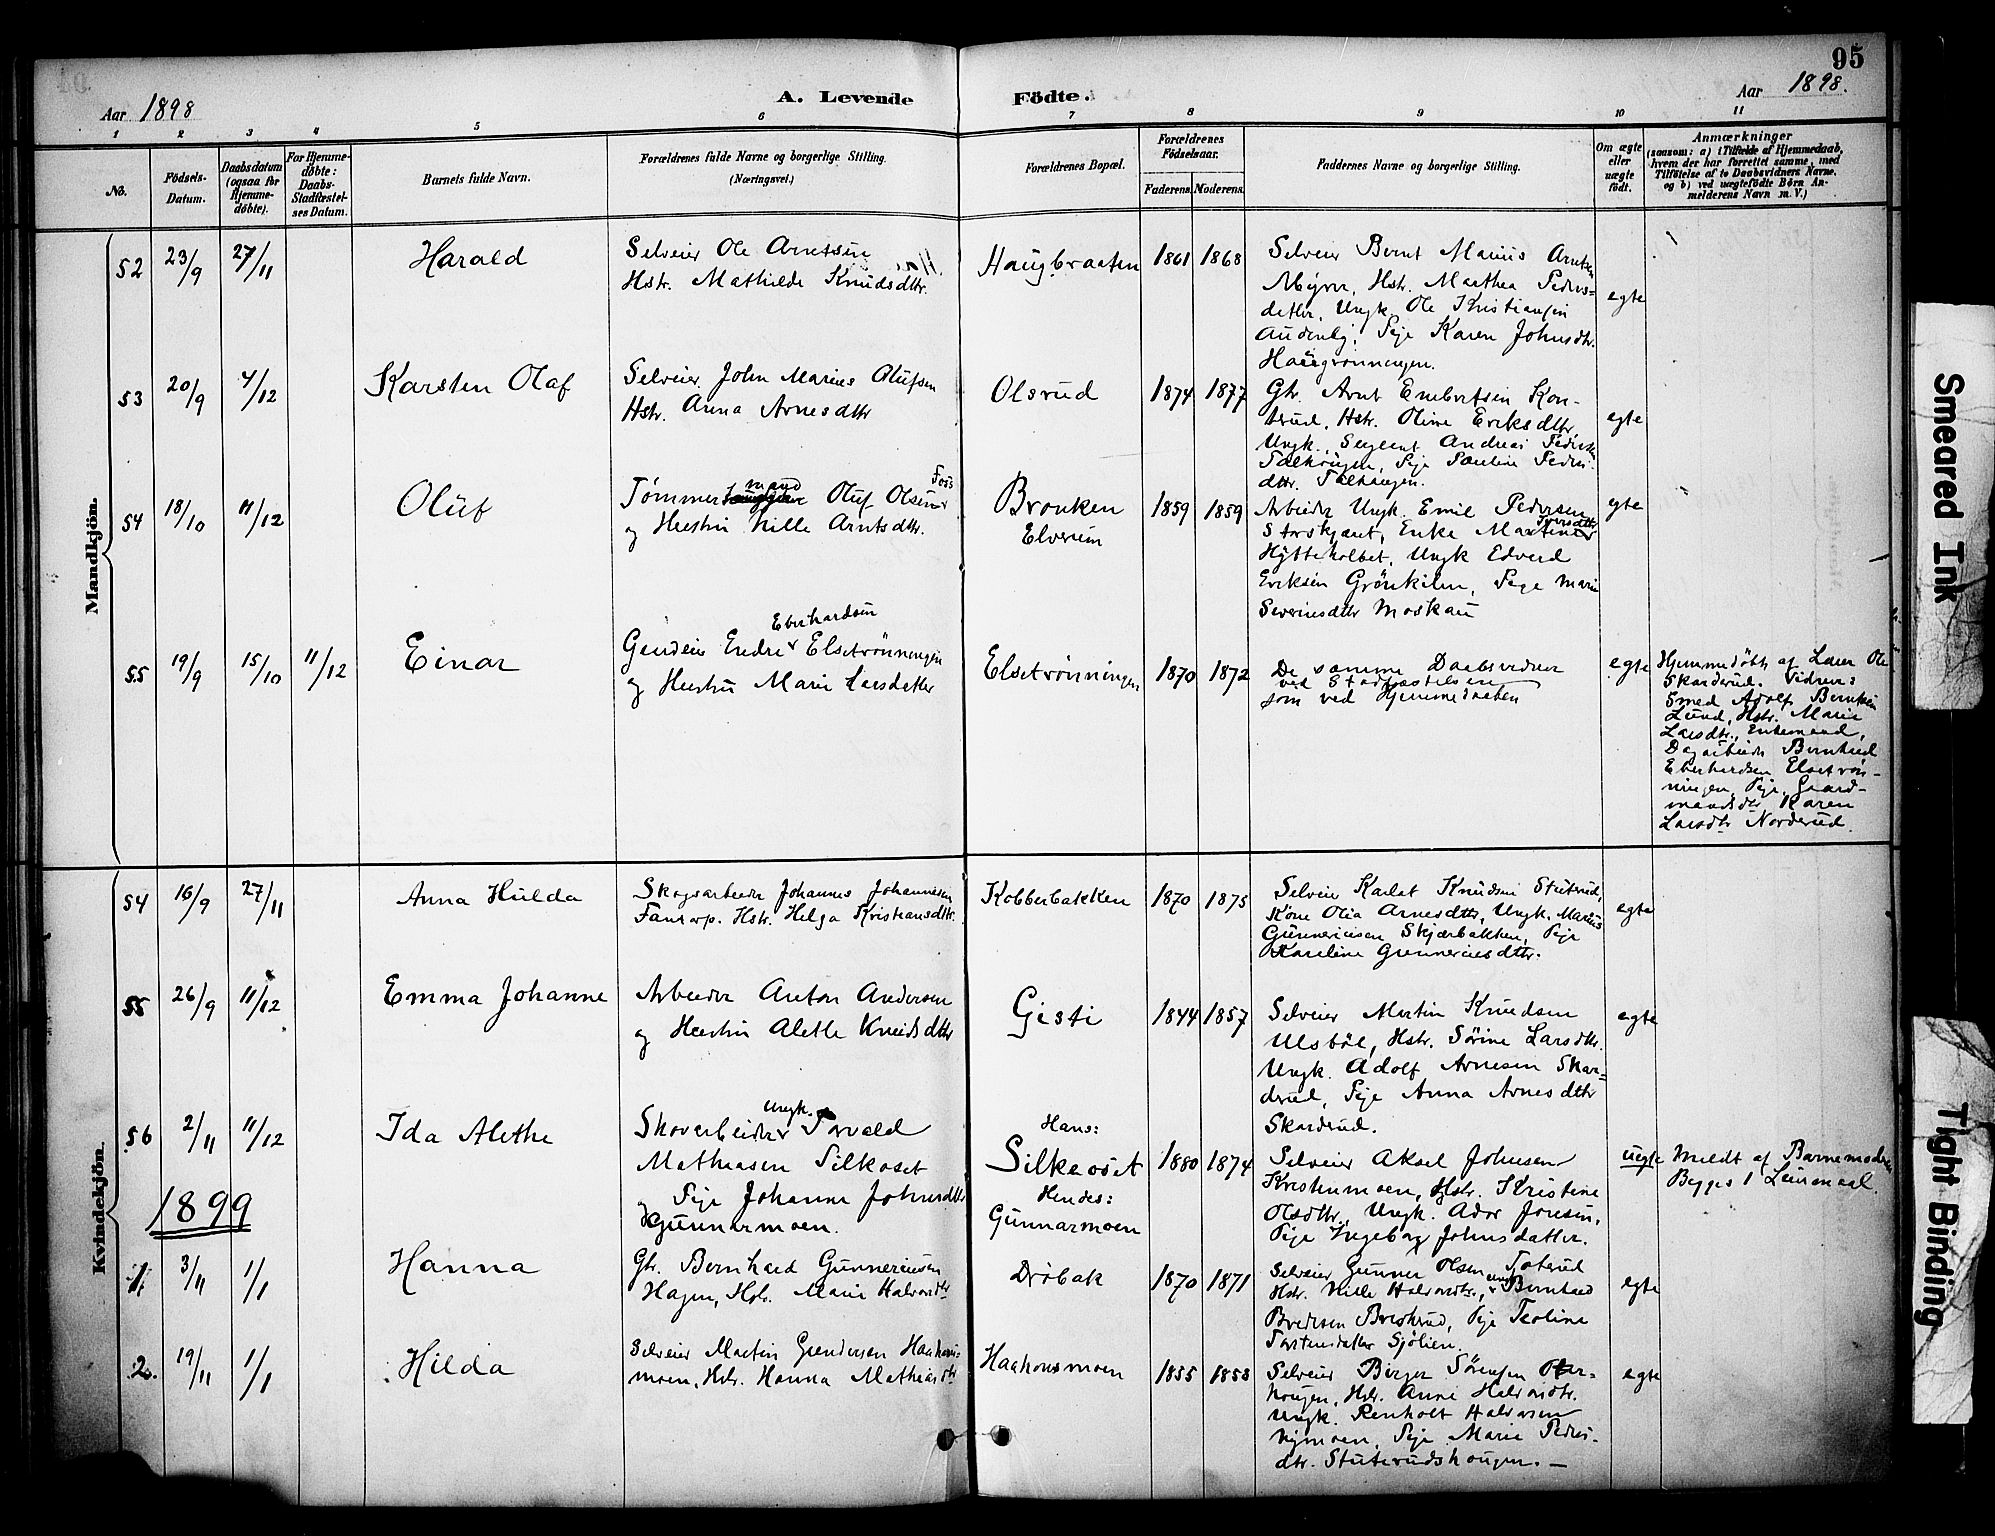 95
Aar 1898
A. Levende Födte.
Aar 1898.
1 2 3 4 5 6 7 8 9 10 11
No.
Födsels-
Datum.
Daabsdatum
(ogsaa for
Hjemme-
døbte).
For Hjemme-
døbte:
Daabs-
Stadfæstel-
ses Datum.
Barnets fulde Navn.
Forældrenes fulde Navne og borgerlige Stilling.
(Næringsvei.)
Forældrenes Bopæl.
Forældrenes
Födselsaar.
Faderens. Moderens.
Faddernes Navne og borgerlige Stilling.
Om ægte
eller
uægte
födt.
Anmærkninger
(saasom: a) i Tilfælde af Hjemmedaab,
hvem der har forrettet samme, med
Tilföielse af to Daabsvidners Navne,
og b) ved uægtefödte Börn An-
melderens Navn m. V.)
Mandkjön.
52 23/9 27/11
Harald
Selveier Ole Arntsen
Hstr. Mathilde Knudsdtr.
Haugbraaten
1861 1868
Selveier Bernt Marius Arntsen
Myrer, Hstr. Marthea Peders=
detter, Ungk. Ole Kristiansen
Pige Karen Johnsdtr.
egte
53 20/9 4/12
Karsten Olaf
Selveier John Marius Olufsen
Hstr. Anna Arnesdtr
Olsrud
1874 1877
Gbr. Arnt Embretsen Kon-
trud, Hstr. Oline Eriksdtr,
Ungk. Sergeant Andreas Pedersen
Pige Pauline Peders-
dtr.
egte
54 18/10 11/12
Oluf
Foss
mand
Tømmer Oluf Olsen
og Hustru Nille Arntsdtr.
Bronken
Elverum
1859 1859
Arbeider Ungk. Emil Pedersen
Storskjæret, Enke Martine
Iversdtr
Hytteholbet, Ungk Edverd
Eriksen Grönkilen, Pige Marie
Severinesdtr Moskau
egte
55 19/9 15/10 11/12
Einar
Eberhardsen
Endre Elsetrönningen
og Hustru Marie Larsdatter
Elsetrönningen
1870 1872
De samme Daabsvidner
ved Stadfæstelsen
som ved Hjemmedaaben
egte
Hjemmedøbt af Lærer Ole
Skarderud. Vidner:
Smed Adolf Berntsen
Lund, Hstr. Marie
Larsdtr., Enkemand,
Dagarbeider Bernhard
Eberhardsen Elsetrön-
ningen, Pige, Gaard-
mandsdtr Karen
Larsdtr Norderud.
Kvindekjön.
54 16/9 27/11
Anna Hulda
Skogsarbeider Johannes Johannesen
Hstr. Helga Kristiansdtr.
Kobberbakken
1870 1875
Selveier Karl Knudsen Stuterud,
Kone Olia Arnesdtr, Ungk. Marius
Gunneriusen Skjærbakken, Pige
Karoline Gunneriusdtr.
egte
55 26/9 11/12
Emma Johanne
Arbeider Anton Andersen
og Hustru Alette Knudsdtr
Gisti
1844 1857
Selveier Martin Knudsen
Ulsböl, Hstr. Sörine Larsdtr.
Ungk. Adolf Arnesen Skar=
derud, Pige Anna Arnesdtr
Skarderud.
egte
56 2/11 11/12
Ida Alethe
Ungk.
Skovarbeider Torvald
Mathiasen Silkoset
og Pige Johanne Johnsdtr
Gunnarmoen.
Hans:
Silkeoset
Hendes:
Gunnarmoen
1880 1874
Selveier Aksel Johnsen
Kristenmoen, Hstr. Kristine
Olsdtr., Ungk. Ador Jonsen,
Pige Ingeborg Johnsdatter.
uegte
Meldt af Barnemoderen
Begges 1 Leiermaal.
1899
1. 3/11 1/1
Hanna
Gbr. Bernhard Gunneriusen
Hagen, Hstr. Marie Halvorsdtr
Dröbak
1870 1871
Selveier Gunner Olsen
Hstr. Nille Halvorsdtr., Ungk Bernhard
Bredesen Breskrud, Pige Teoline
Torstensdatter Sjölien.
egte
2. 19/11 1/1
Hilda
Selveier Martin Gundersen Haakons-
moen, Hstr. Hanna Mathiasdtr
Haakonsmoen
1855 1853
Selveier Birger Sörensen
Hstr. Anne Halvorsdtr.
Ungk. Renholt Halvorsen
Nymoen, Pige Marie Peders-
dtr. Stuterudshougen. —
egte
Smeared Ink
Tight Binding